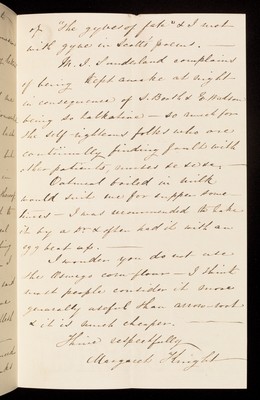 of "The gyves of fate" & I met
with gyves in Scott's poems. —
M. J. Sunderland complains
of being kept awake at night
in consequence of S. Booth & E. Hudson
being so talkative — so much for
the self-righteous folks who are
continually finding fault with
other patients, nurses &c &c &c. —
Oatmeal boiled in milk
would suit me for supper some-
times — I was recommended to take
it by a Dr & often had it with an
egg beat up. —
I wonder you do not use
the Oswego corn flour — I think
most people consider it more
generally useful than arrow-root
& it is much cheaper. —
Thine respectfully
Margaret Knight